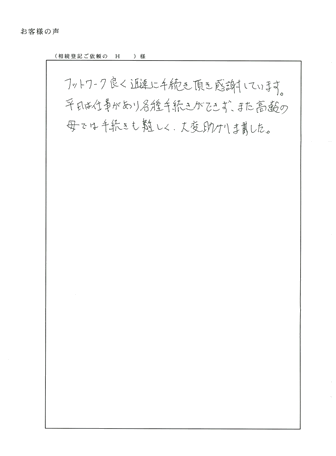 お客様の声
（相続登記ご依頼の　H　　）様
フットワーク良く迅速に手続き頂き感謝しています。
平日は仕事があり各種手続きができず、また高齢の
母では手続きも難しく、大変助かりました。